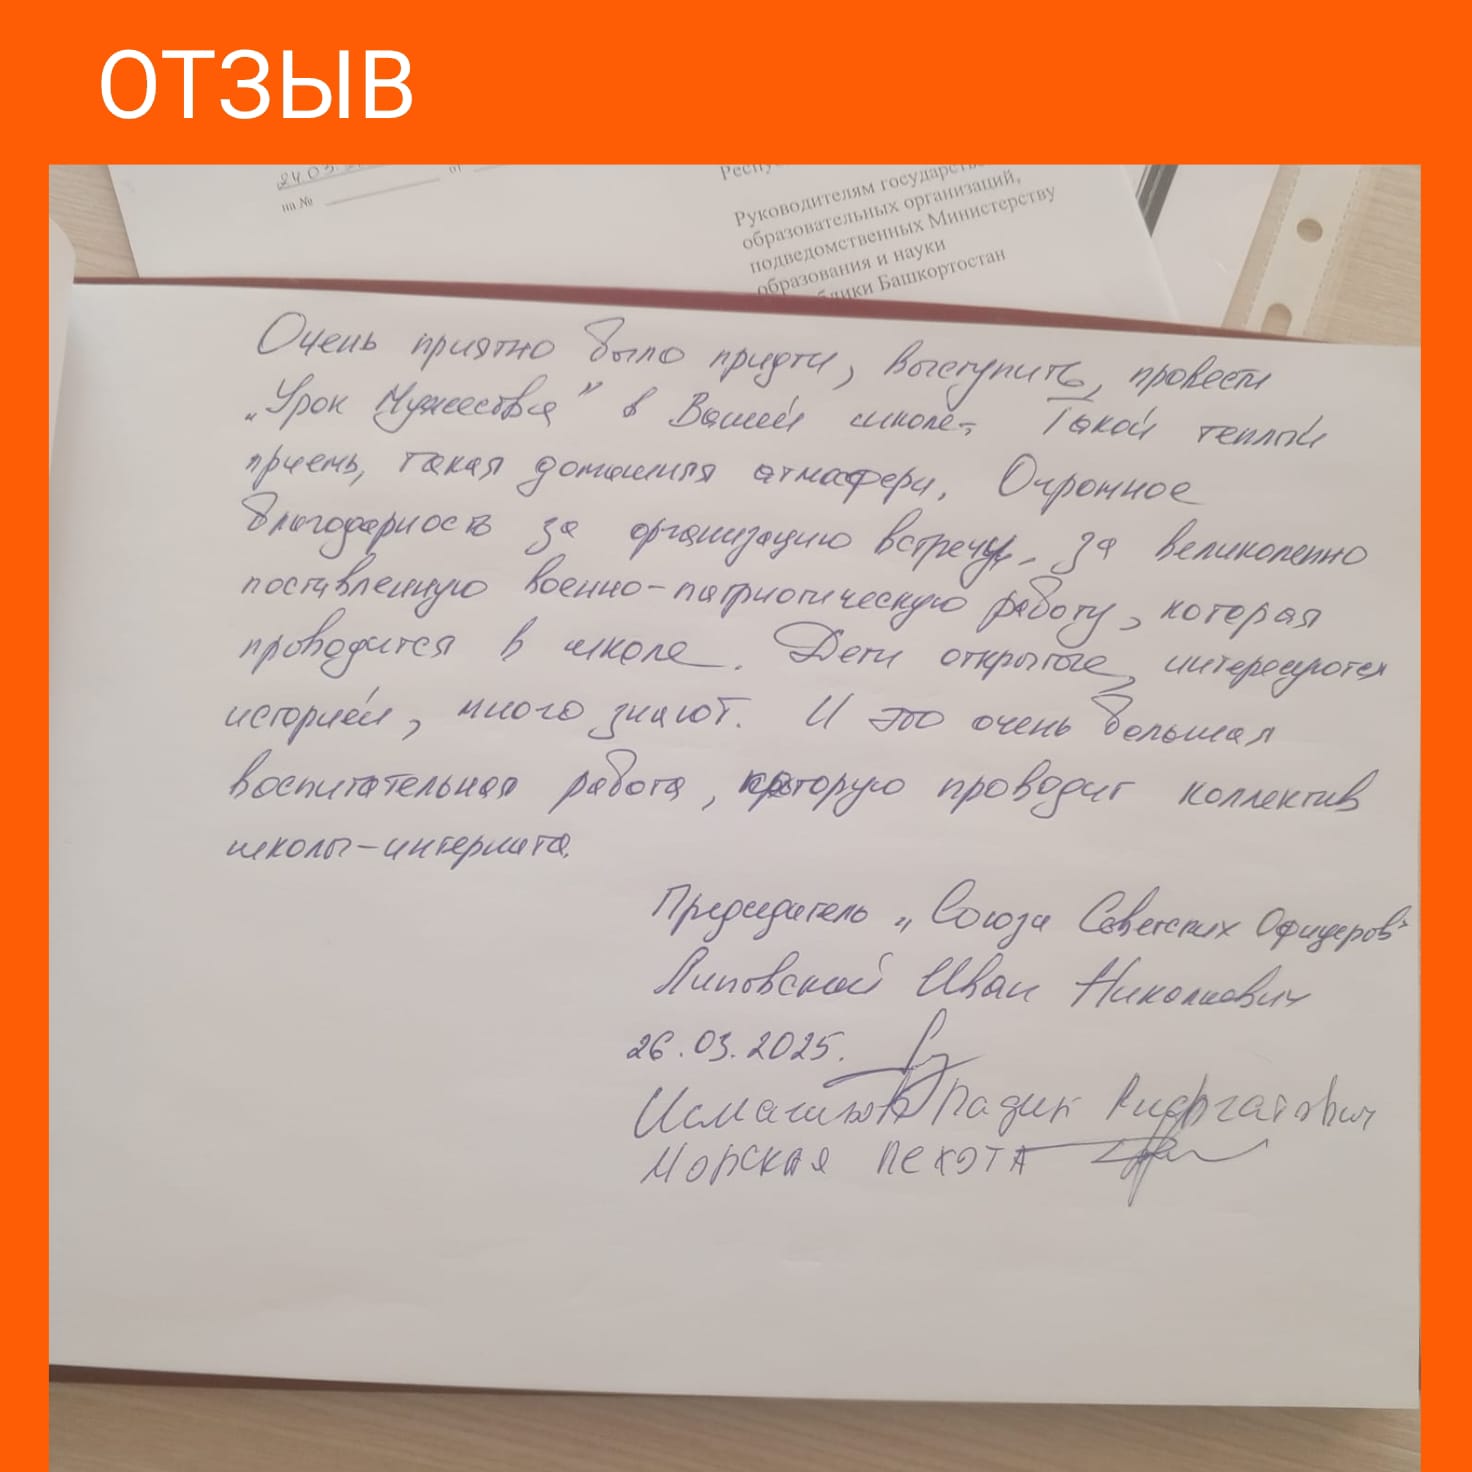 ОТЗЫВ
24.03.2
на №
от
Респу
Руководителям государстве
образовательных организаций,
подведомственных Министерству
образования и науки
блики Башкортостан
Очень приятно было придти, выступить, провести
„Урок Мужества" в Вашей школе. Такой теплый
приемь, такая домашняя атмасфера. Огромное
благодарность за организацию встречи, за великолепно
поставленную военно-патриотическую работу, которая
проводится в школе. Дети открытые, интересуются
историей, много знают. И это очень большая
воспитательная работа, которую проводит коллектив
школы-интерната.
Председатель „Союза Советских Офицеров"
Липовской Иван Николаевич
26.03.2025.
Исмагилов Радик
Морская пехота